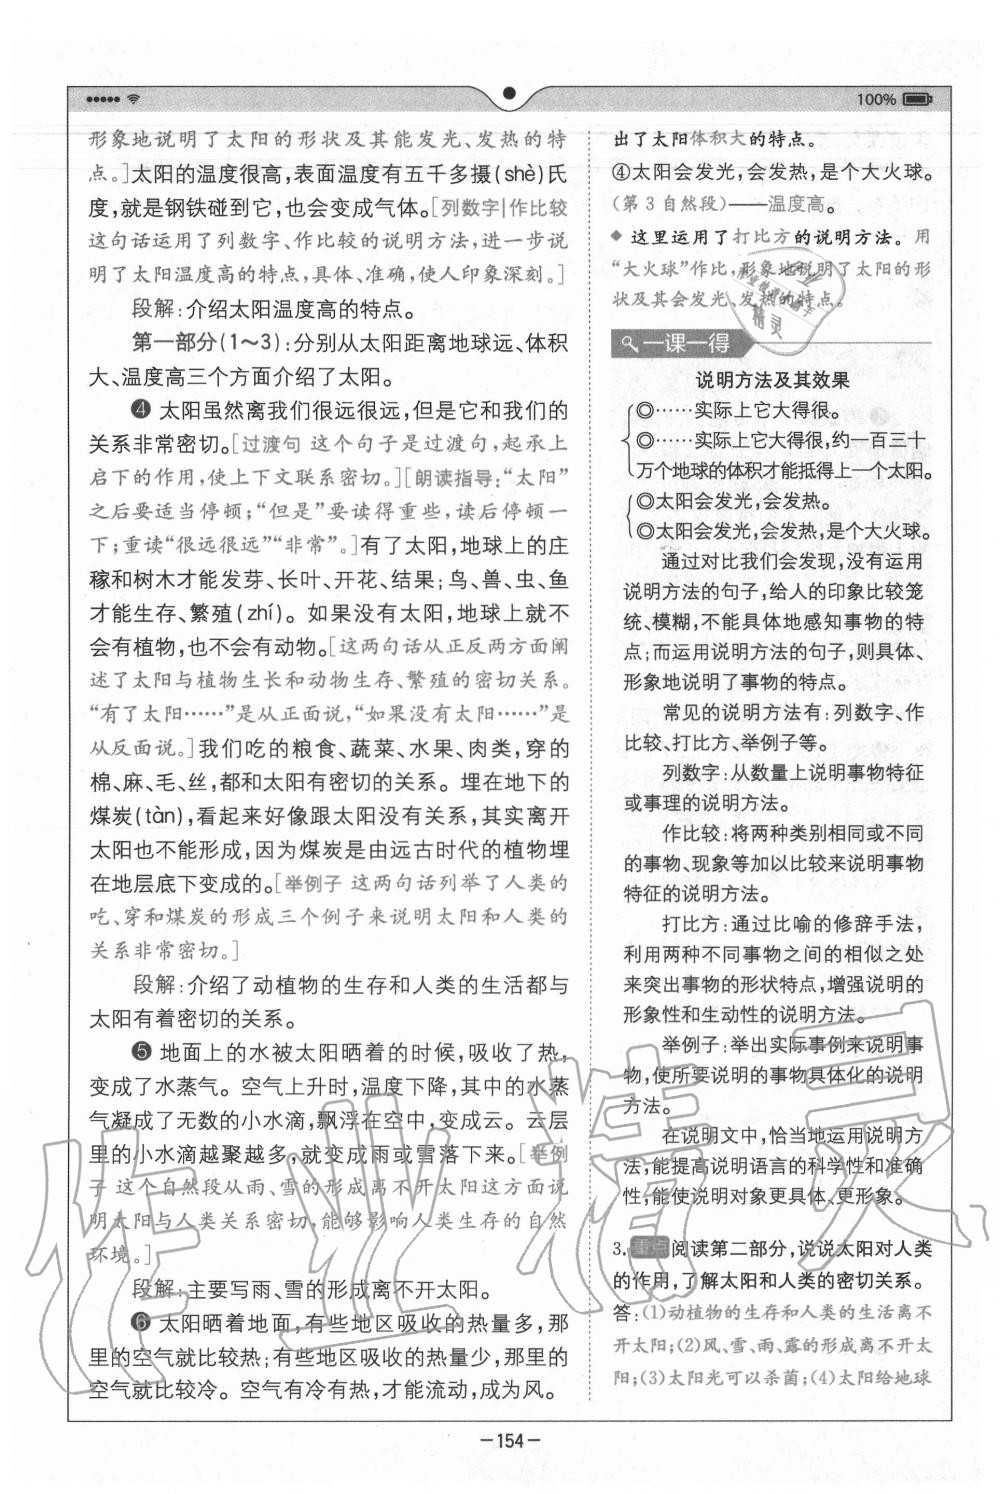 100%
形象地说明了太阳的形状及其能发光、发热的特
点。]太阳的温度很高,表面温度有五千多摄(shè)氏
度,就是钢铁碰到它,也会变成气体。[列数字|作比较
这句话运用了列数字、作比较的说明方法,进一步说
明了太阳温度高的特点,具体、准确,使人印象深刻。]
段解:介绍太阳温度高的特点。
第一部分(1～3):分别从太阳距离地球远、体积
大、温度高三个方面介绍了太阳。
❹ 太阳虽然离我们很远很远,但是它和我们的
关系非常密切。[过渡句 这个句子是过渡句,起承上
启下的作用,使上下文联系密切。][朗读指导:“太阳”
之后要适当停顿;“但是”要读得重些,读后停顿一
下;重读“很远很远”“非常”。]有了太阳,地球上的庄
稼和树木才能发芽、长叶、开花、结果;鸟、兽、虫、鱼
才能生存、繁殖(zhí)。如果没有太阳,地球上就不
会有植物,也不会有动物。[这两句话从正反两方面阐
述了太阳与植物生长和动物生存、繁殖的密切关系。
“有了太阳……”是从正面说,“如果没有太阳……”是
从反面说。]我们吃的粮食、蔬菜、水果、肉类,穿的
棉、麻、毛、丝,都和太阳有密切的关系。埋在地下的
煤炭(tàn),看起来好像跟太阳没有关系,其实离开
太阳也不能形成,因为煤炭是由远古时代的植物埋
在地层底下变成的。[举例子 这两句话列举了人类的
吃、穿和煤炭的形成三个例子来说明太阳和人类的
关系非常密切。]
段解:介绍了动植物的生存和人类的生活都与
太阳有着密切的关系。
❺ 地面上的水被太阳晒着的时候,吸收了热,
变成了水蒸气。空气上升时,温度下降,其中的水蒸
气凝成了无数的小水滴,飘浮在空中,变成云。云层
里的小水滴越聚越多,就变成雨或雪落下来。[举例
子 这个自然段从雨、雪的形成离不开太阳这方面说
明太阳与人类关系密切,能够影响人类生存的自然
环境。]
段解:主要写雨、雪的形成离不开太阳。
❻ 太阳晒着地面,有些地区吸收的热量多,那
里的空气就比较热;有些地区吸收的热量少,那里的
空气就比较冷。空气有冷有热,才能流动,成为风。
出了太阳体积大的特点。
④太阳会发光,会发热,是个大火球。
(第3自然段)——温度高。
◆ 这里运用了打比方的说明方法。用
“大火球”作比,形象地说明了太阳的形
状及其会发光、发热的特点。
一课一得
说明方法及其效果
◎……实际上它大得很。
◎……实际上它大得很,约一百三十
万个地球的体积才能抵得上一个太阳。
◎太阳会发光,会发热。
◎太阳会发光,会发热,是个大火球。
通过对比我们会发现,没有运用
说明方法的句子,给人的印象比较笼
统、模糊,不能具体地感知事物的特
点;而运用说明方法的句子,则具体、
形象地说明了事物的特点。
常见的说明方法有:列数字、作
比较、打比方、举例子等。
列数字:从数量上说明事物特征
或事理的说明方法。
作比较:将两种类别相同或不同
的事物、现象等加以比较来说明事物
特征的说明方法。
打比方:通过比喻的修辞手法,
利用两种不同事物之间的相似之处
来突出事物的形状特点,增强说明的
形象性和生动性的说明方法。
举例子:举出实际事例来说明事
物,使所要说明的事物具体化的说明
方法。
在说明文中,恰当地运用说明方
法,能提高说明语言的科学性和准确
性,能使说明对象更具体、更形象。
3.重点 阅读第二部分,说说太阳对人类
的作用,了解太阳和人类的密切关系。
答:(1)动植物的生存和人类的生活离不
开太阳;(2)风、雪、雨、露的形成离不开太
阳;(3)太阳光可以杀菌;(4)太阳给地球
—154—
作业精灵
精灵